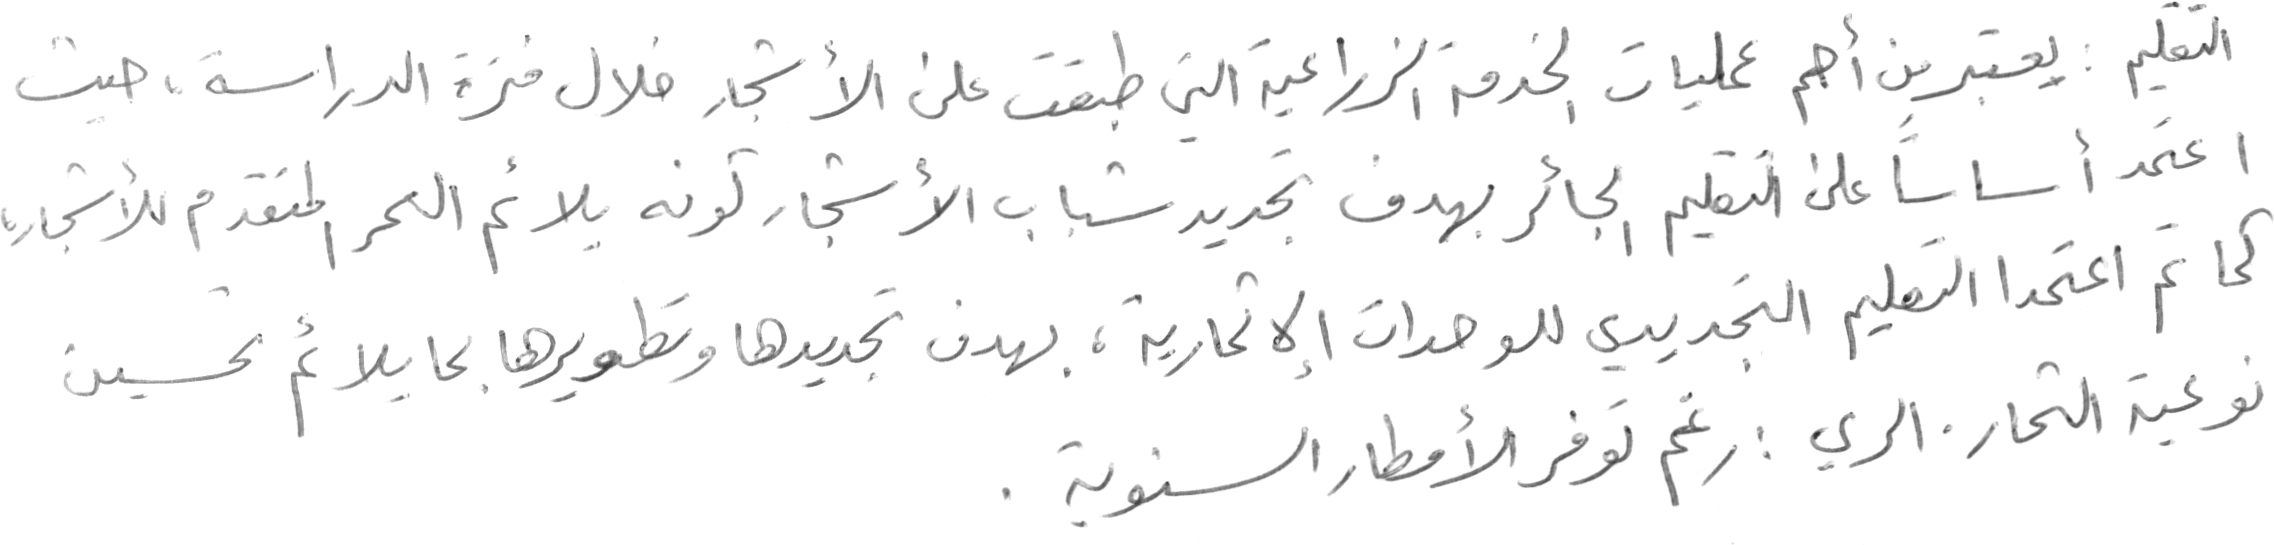 التقليم : يعتبر من أهم عمليات الخدمة الزراعية التي طبقت على الأشجار خلال فترة الدراسة، حيث
اعتمد أساساً على التقليم الجائر بهدف تجديد شباب الأشجار كونه يلائم العمر المتقدم للأشجار،
كما تم اعتمدا التقليم التجديدي للوحدات الإثمارية، بهدف تجديدها وتطويرها بما يلائم تحسين
نوعية الثمار. الري : رغم توفر الأمطار السنوية .